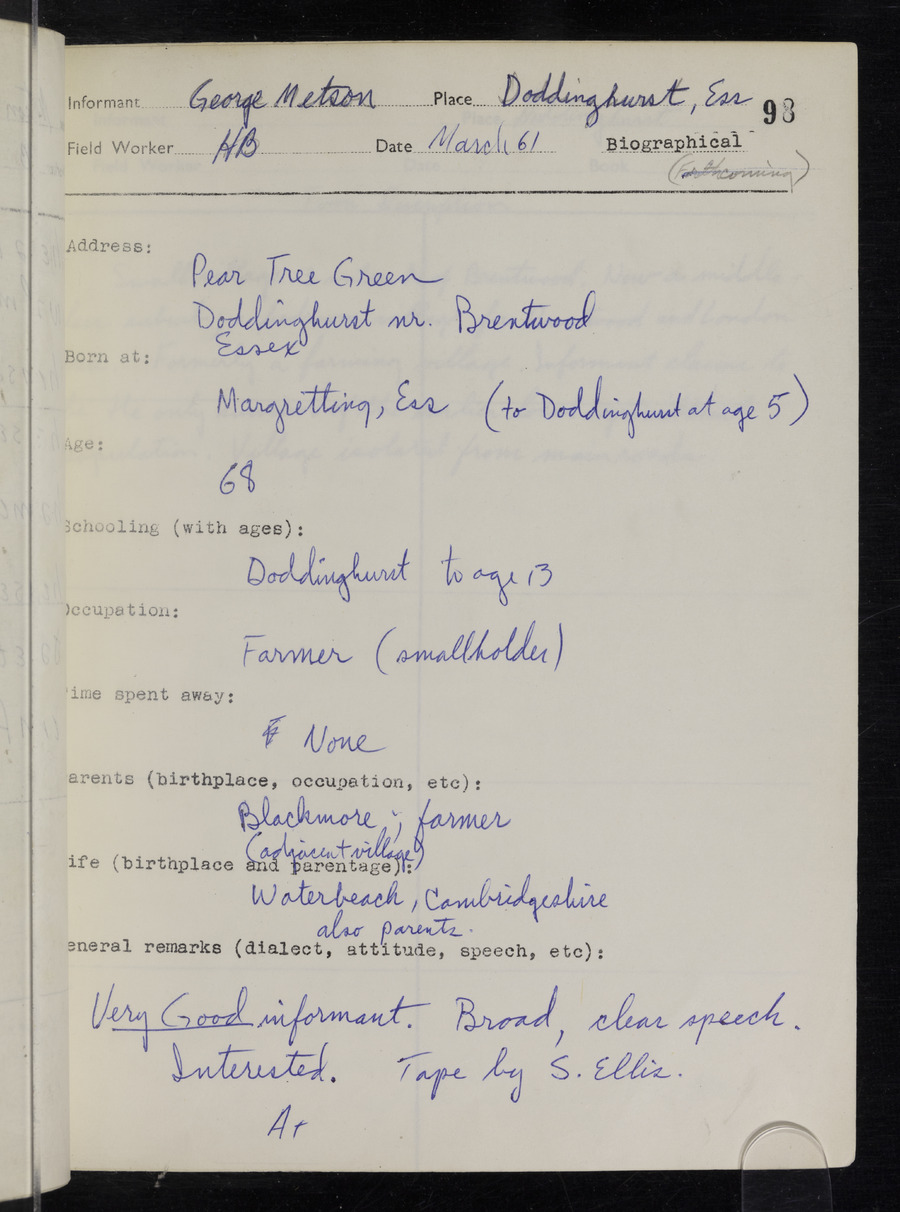 Informant George Metson Place Doddinghurst, Ess 98
Field Worker HB Date March 61 Biographical
(Forthcoming)
Address:
Pear Tree Green
Doddinghurst nr. Brentwood
Essex
Born at:
Margretting, Ess (to Doddinghurst at age 5)
Age:
68
Schooling (with ages):
Doddinghurst to age 13
Occupation:
Farmer (smallholder)
ime spent away:
None
arents (birthplace, occupation, etc):
Blackmore ; farmer
(adjacent village)
ife (birthplace and parentage):
Waterbeach, Cambridgeshire
also parents.
eneral remarks (dialect, attitude, speech, etc):
Very Good informant. Broad, clear speech.
Interested. Tape by S. Ellis.
A+